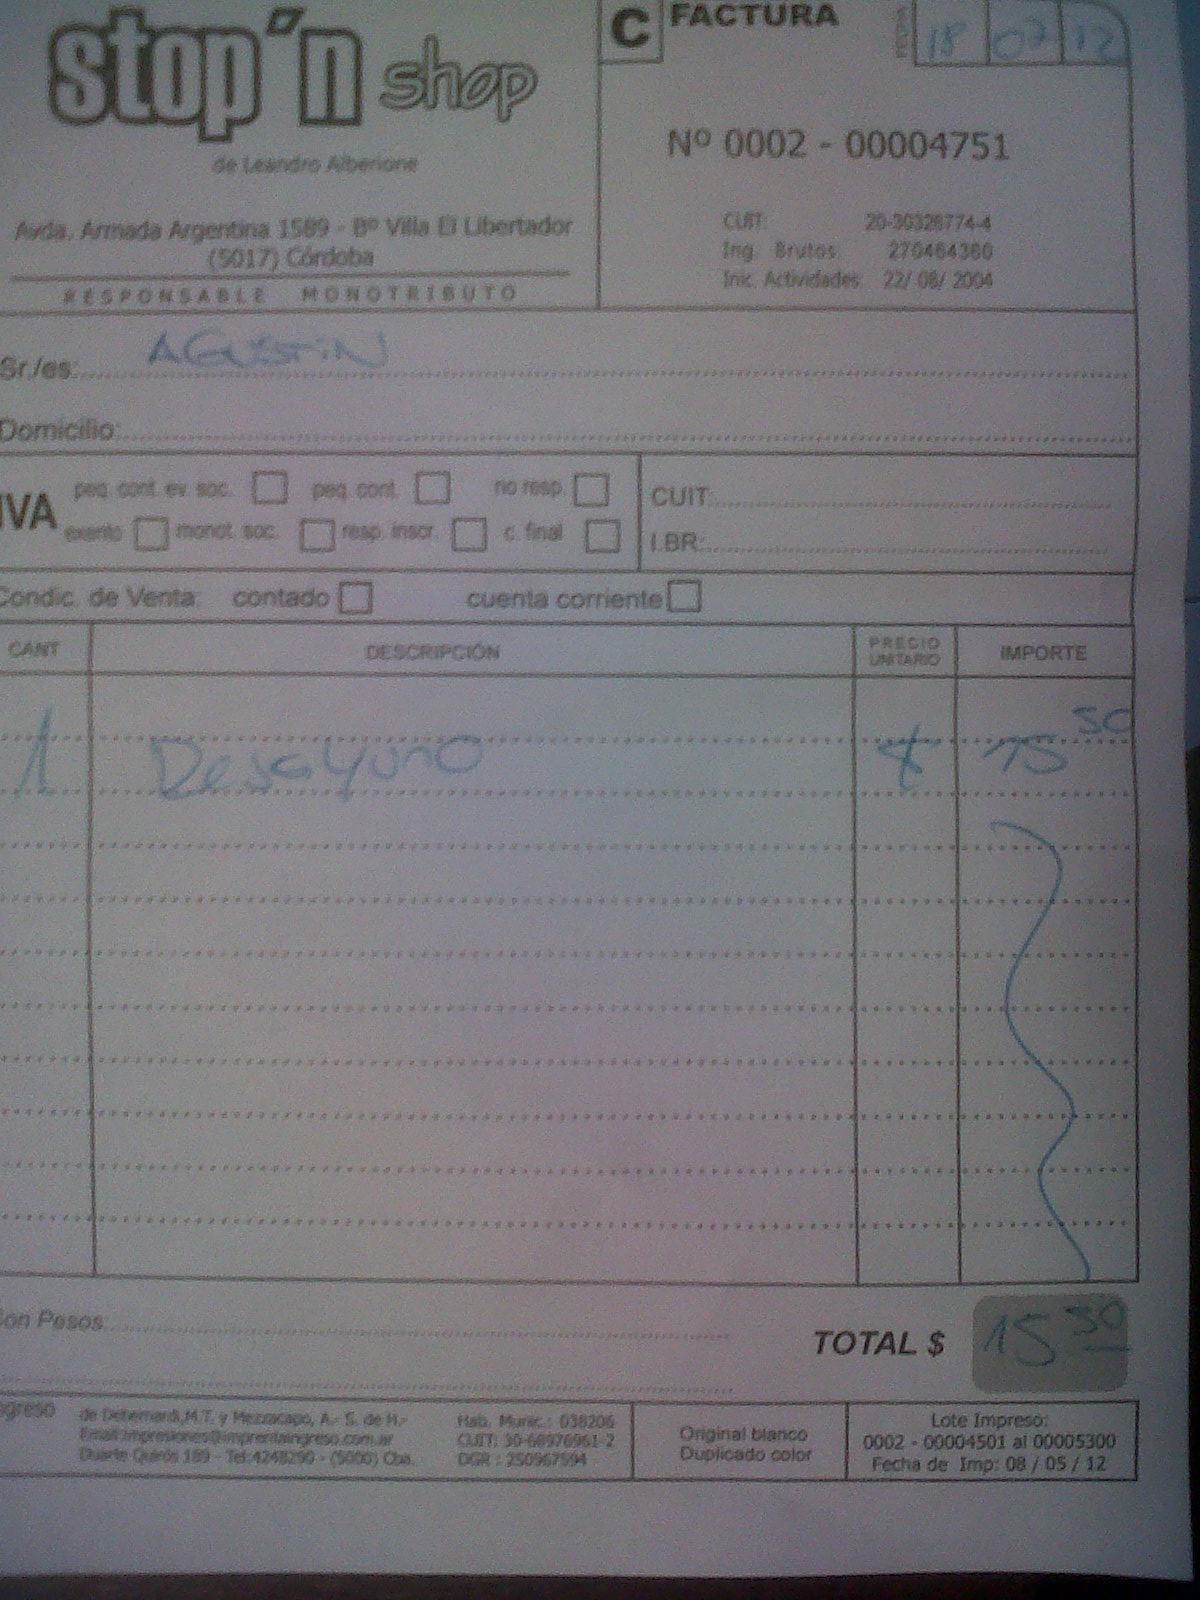 stop'n shop
de Leandro Alberione
Avda. Armada Argentina 1589 - Bº Villa El Libertador
(5017) Córdoba
RESPONSABLE MONOTRIBUTO
C FACTURA
FECHA 18 07 12
Nº 0002 - 00004751
CUIT: 20-30328774-4
Ing. Brutos: 270464360
Inic. Actividades: 22/ 08/ 2004
Sr./es: AGUSTIN
Domicilio:
IVA
peq. cont. ev. soc. peq. cont. no resp.
exento monot. soc. resp. inscr. c. final
CUIT:
I.BR:
Condic. de Venta: contado cuenta corriente
CANT DESCRIPCIÓN PRECIO UNITARIO IMPORTE
1 Desayuno $ 15 50
Son Pesos:
TOTAL $ 15 50
de Debernardi,M.T. y Mezzacapo, A.- S. de H.-
Email:impresiones@imprentaingreso.com.ar
Duarte Quirós 189 - Tel:4248290 - (5000) Cba.
Hab. Munic.: 038206
CUIT: 30-68976961-2
DGR : 250967594
Original blanco
Duplicado color
Lote Impreso:
0002 - 00004501 al 00005300
Fecha de Imp: 08 / 05 / 12